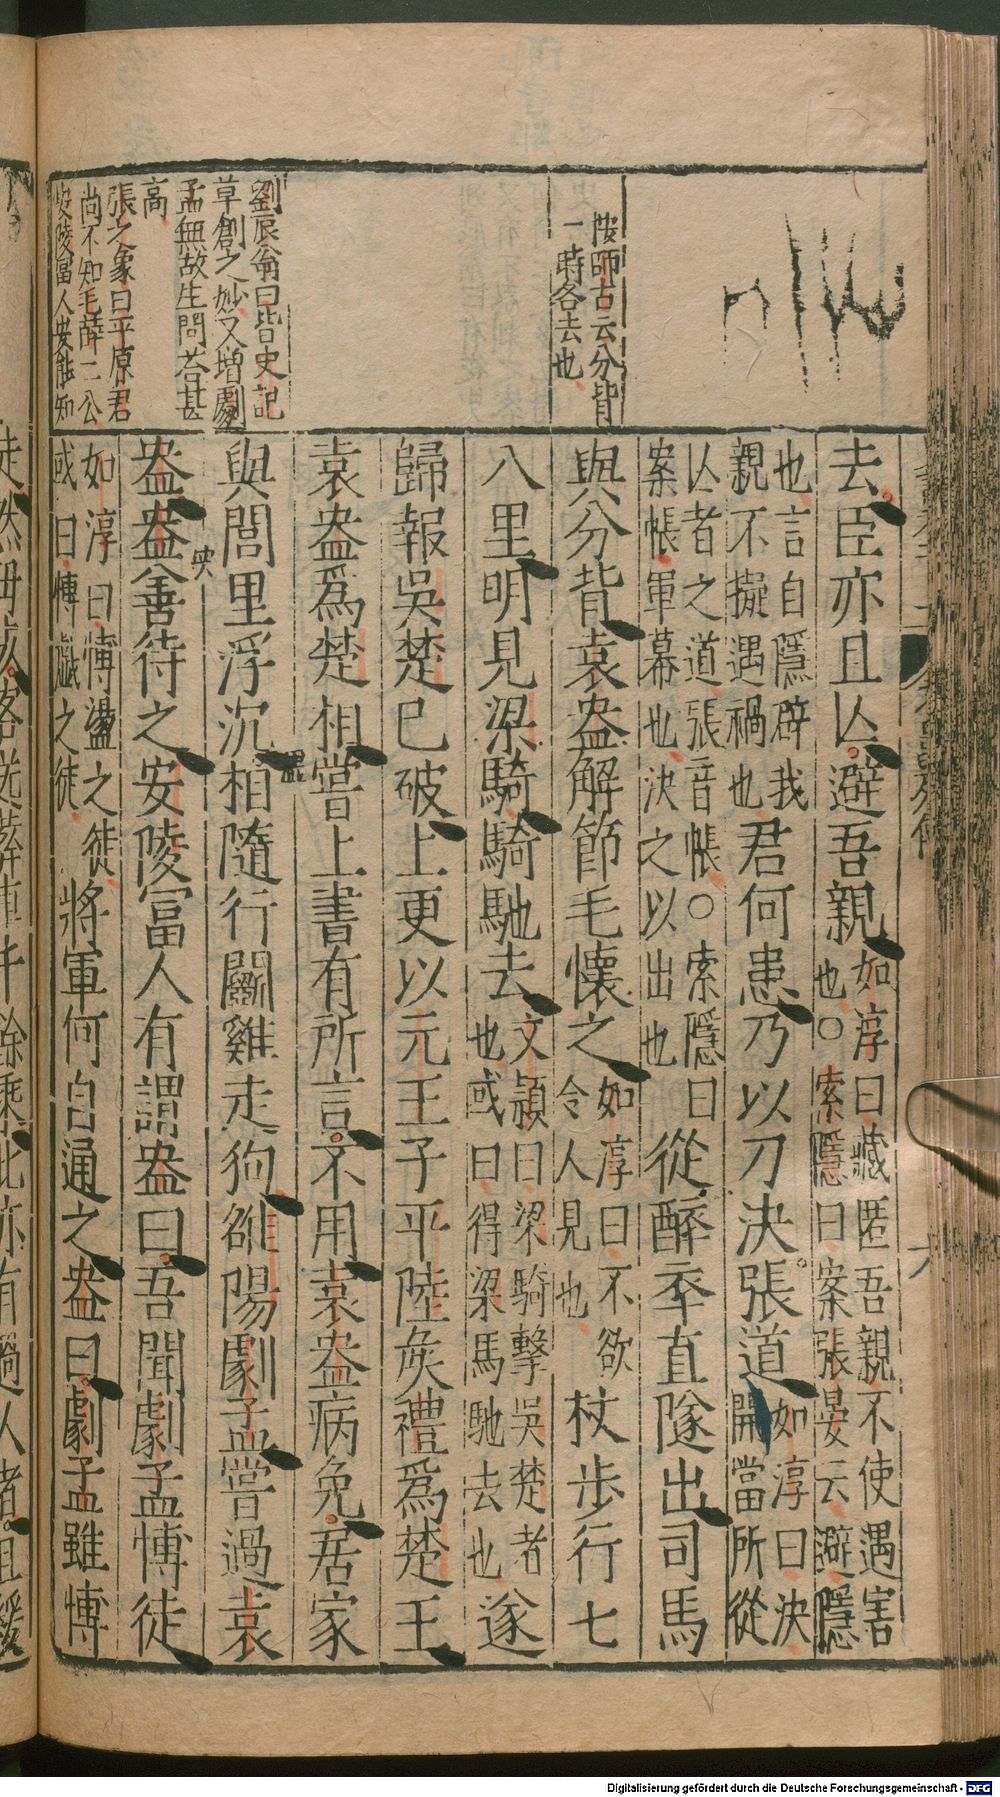 按師古云分背
一時各去也
劉辰翁曰皆史記
草創之妙又増劇
孟無故生問荅甚
高
張之象曰平原君
尚不知毛薛二公
安陵富人安能知
去臣亦且亾避吾親
如淳曰藏匿吾親不使遇害
也○索隱曰案張晏云避隱
也言自隱辟我
親不擬遇禍也
君何患乃以刀決張道
如淳曰決
開當所從
亾者之道張音帳○索隱曰
案帳軍幕也決之以出也
從醉卒直隧出司馬
與分背袁盎解節毛懷之
如淳曰不欲
令人見也
杖步行七
八里明見梁騎騎馳去
文潁曰梁騎擊吳楚者
也或曰得梁馬馳去也
遂
歸報吳楚已破上更以元王子平陸矦禮爲楚王
袁盎爲楚相嘗上書有所言不用袁盎病免居家
與閭里浮沉相隨行鬭雞走狗雒陽劇孟嘗過袁
盎盎善待之安陵富人有謂盎曰吾聞劇孟博徒
如淳曰博盪之徒
或曰博戲之徒
將軍何自通之盎曰劇孟雖博
六
Digitalisierung gefördert durch die Deutsche Forschungsgemeinschaft - DFG